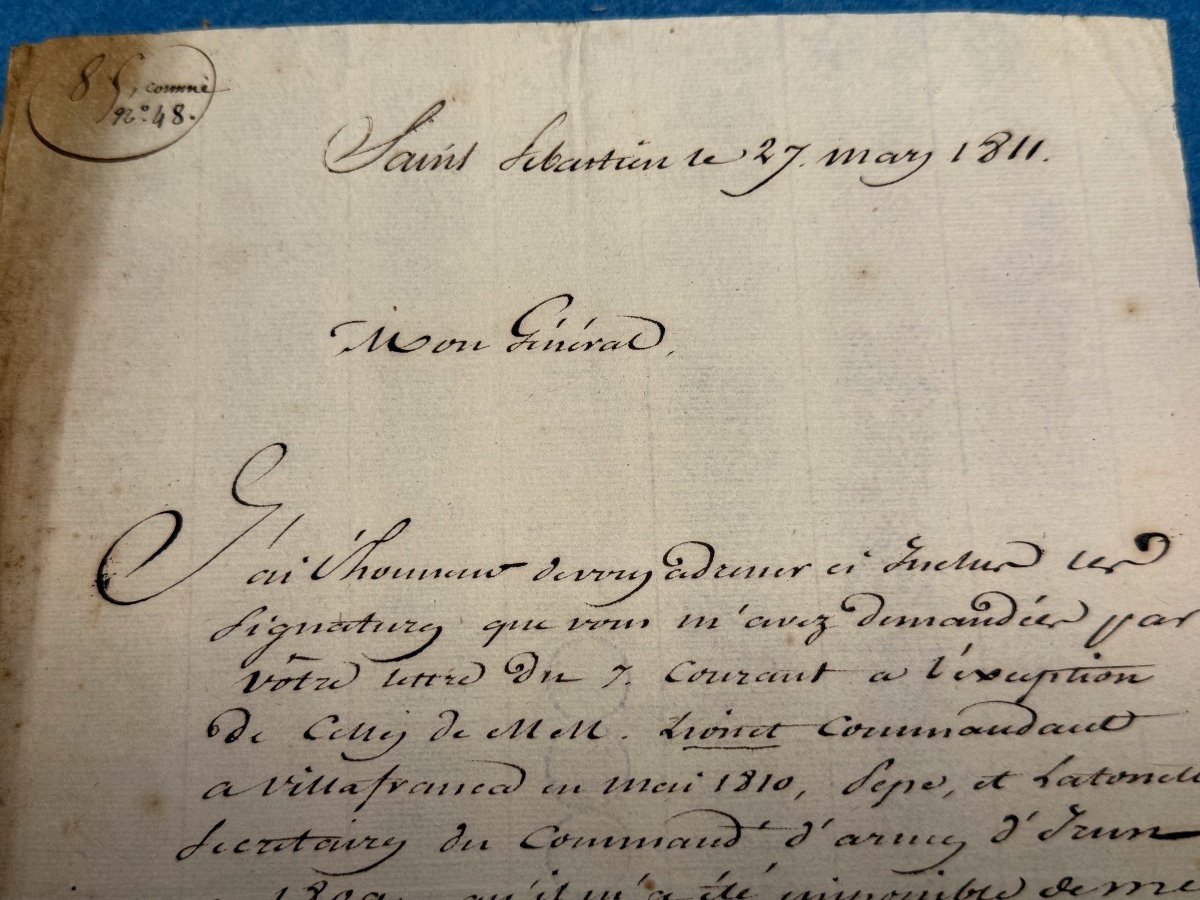 85, comme
n.° 48.
Saint Sebastien le 27. mars 1811.
Mon Général,
J'ai l'honneur de vous adresser ci Inclus les
signatures que vous m'avez demandées par
vôtre lettre du 7. Courant a l'éxception
de Celles de MM. Lionet Commandant
a Villafranca en mai 1810, Pepe, et
Secretaires du Command.t d'armes d'Irun
1809 qu'il m'a été impossible de me